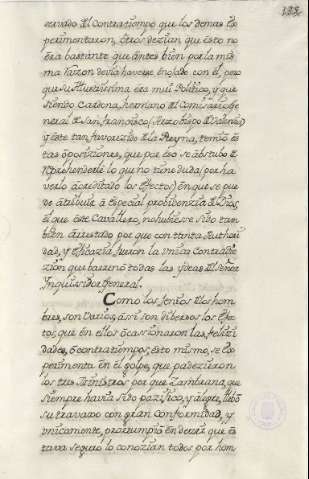 188
servado del contratiempo que los demas ex
perimentaron, otros dezian que esto no
era bastante que antes bien por la mis
ma razon devia haverse enojado con el, pero
que su Illustrissima era mui Politico, y que
siendo Cardona, hermano del Comisario Ge
neral de San francisco (Arzobispo de Valencia)
y éste tan favorezido de la Reyna, temio es
tas oposiciones, que por eso se abstubo de
reprehenderle lo que no tiene duda (por ha
verlo acreditado los efectos) en que se pue
de atribuir á especial probidenzia de Dios,
el que este Cavallero, no hubiese sido tam
bien arrestado por que con tanta Authori
dad, y eficazia fueron la unica contradic
zion que barrenó todas las ydeas del Señor
Ynquissidor General.
Como los Genios de los hom
bres, son varios, assi son diversos los efec
tos, que en ellos ocasionaron las felizi
dades, ó contratiempos, esto mismo, se ex
perimenta en el golpe, que padezieron
los tres Ministros por que Zambrana, que
siempre havia sido pazifico, y alegre, llebó
su travaxo con gran conformidad, y
unicamente, prorrumpió en dezir que es
tava seguro lo conozian todos por hom